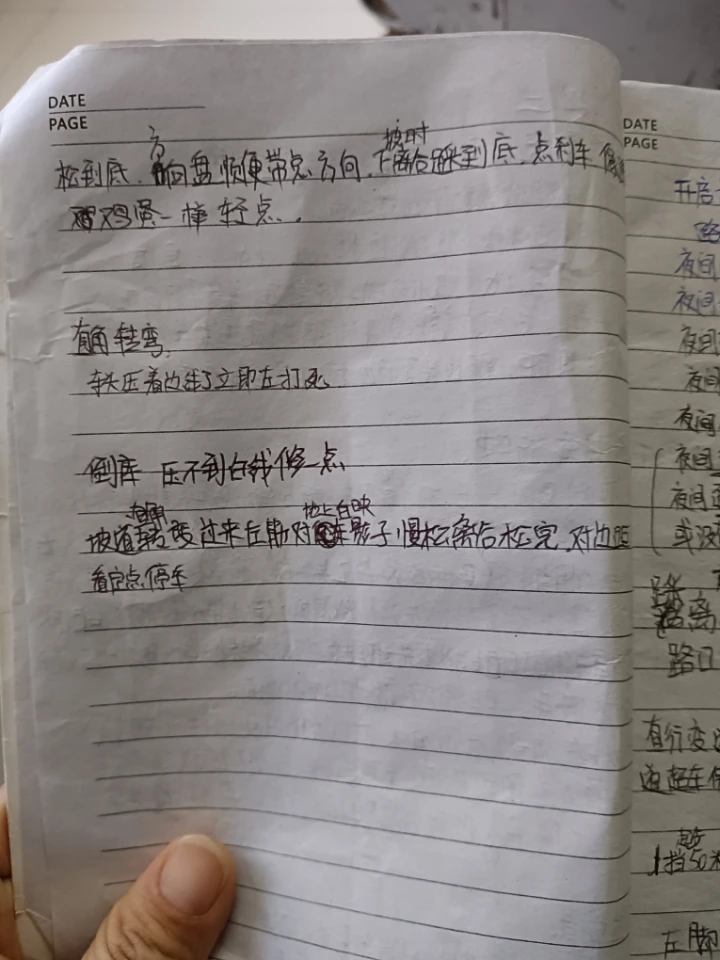 DATE
PAGE
松到底.方向盘顺便带点方向,下坡时离合踩到底.点刹车
鸡蛋一样轻点.
直角转弯,
车头压着边线了立即左打死
倒库 压不到白线修一点
坡道 过来左脚对 影子慢松离合松完.对边距
看定点停车
DATE
PAGE
开启
路
夜间
夜间
夜间
夜间
夜间
夜间
夜间
或没
距离
路口
有行变
超车
起步
1挡50米
左脚